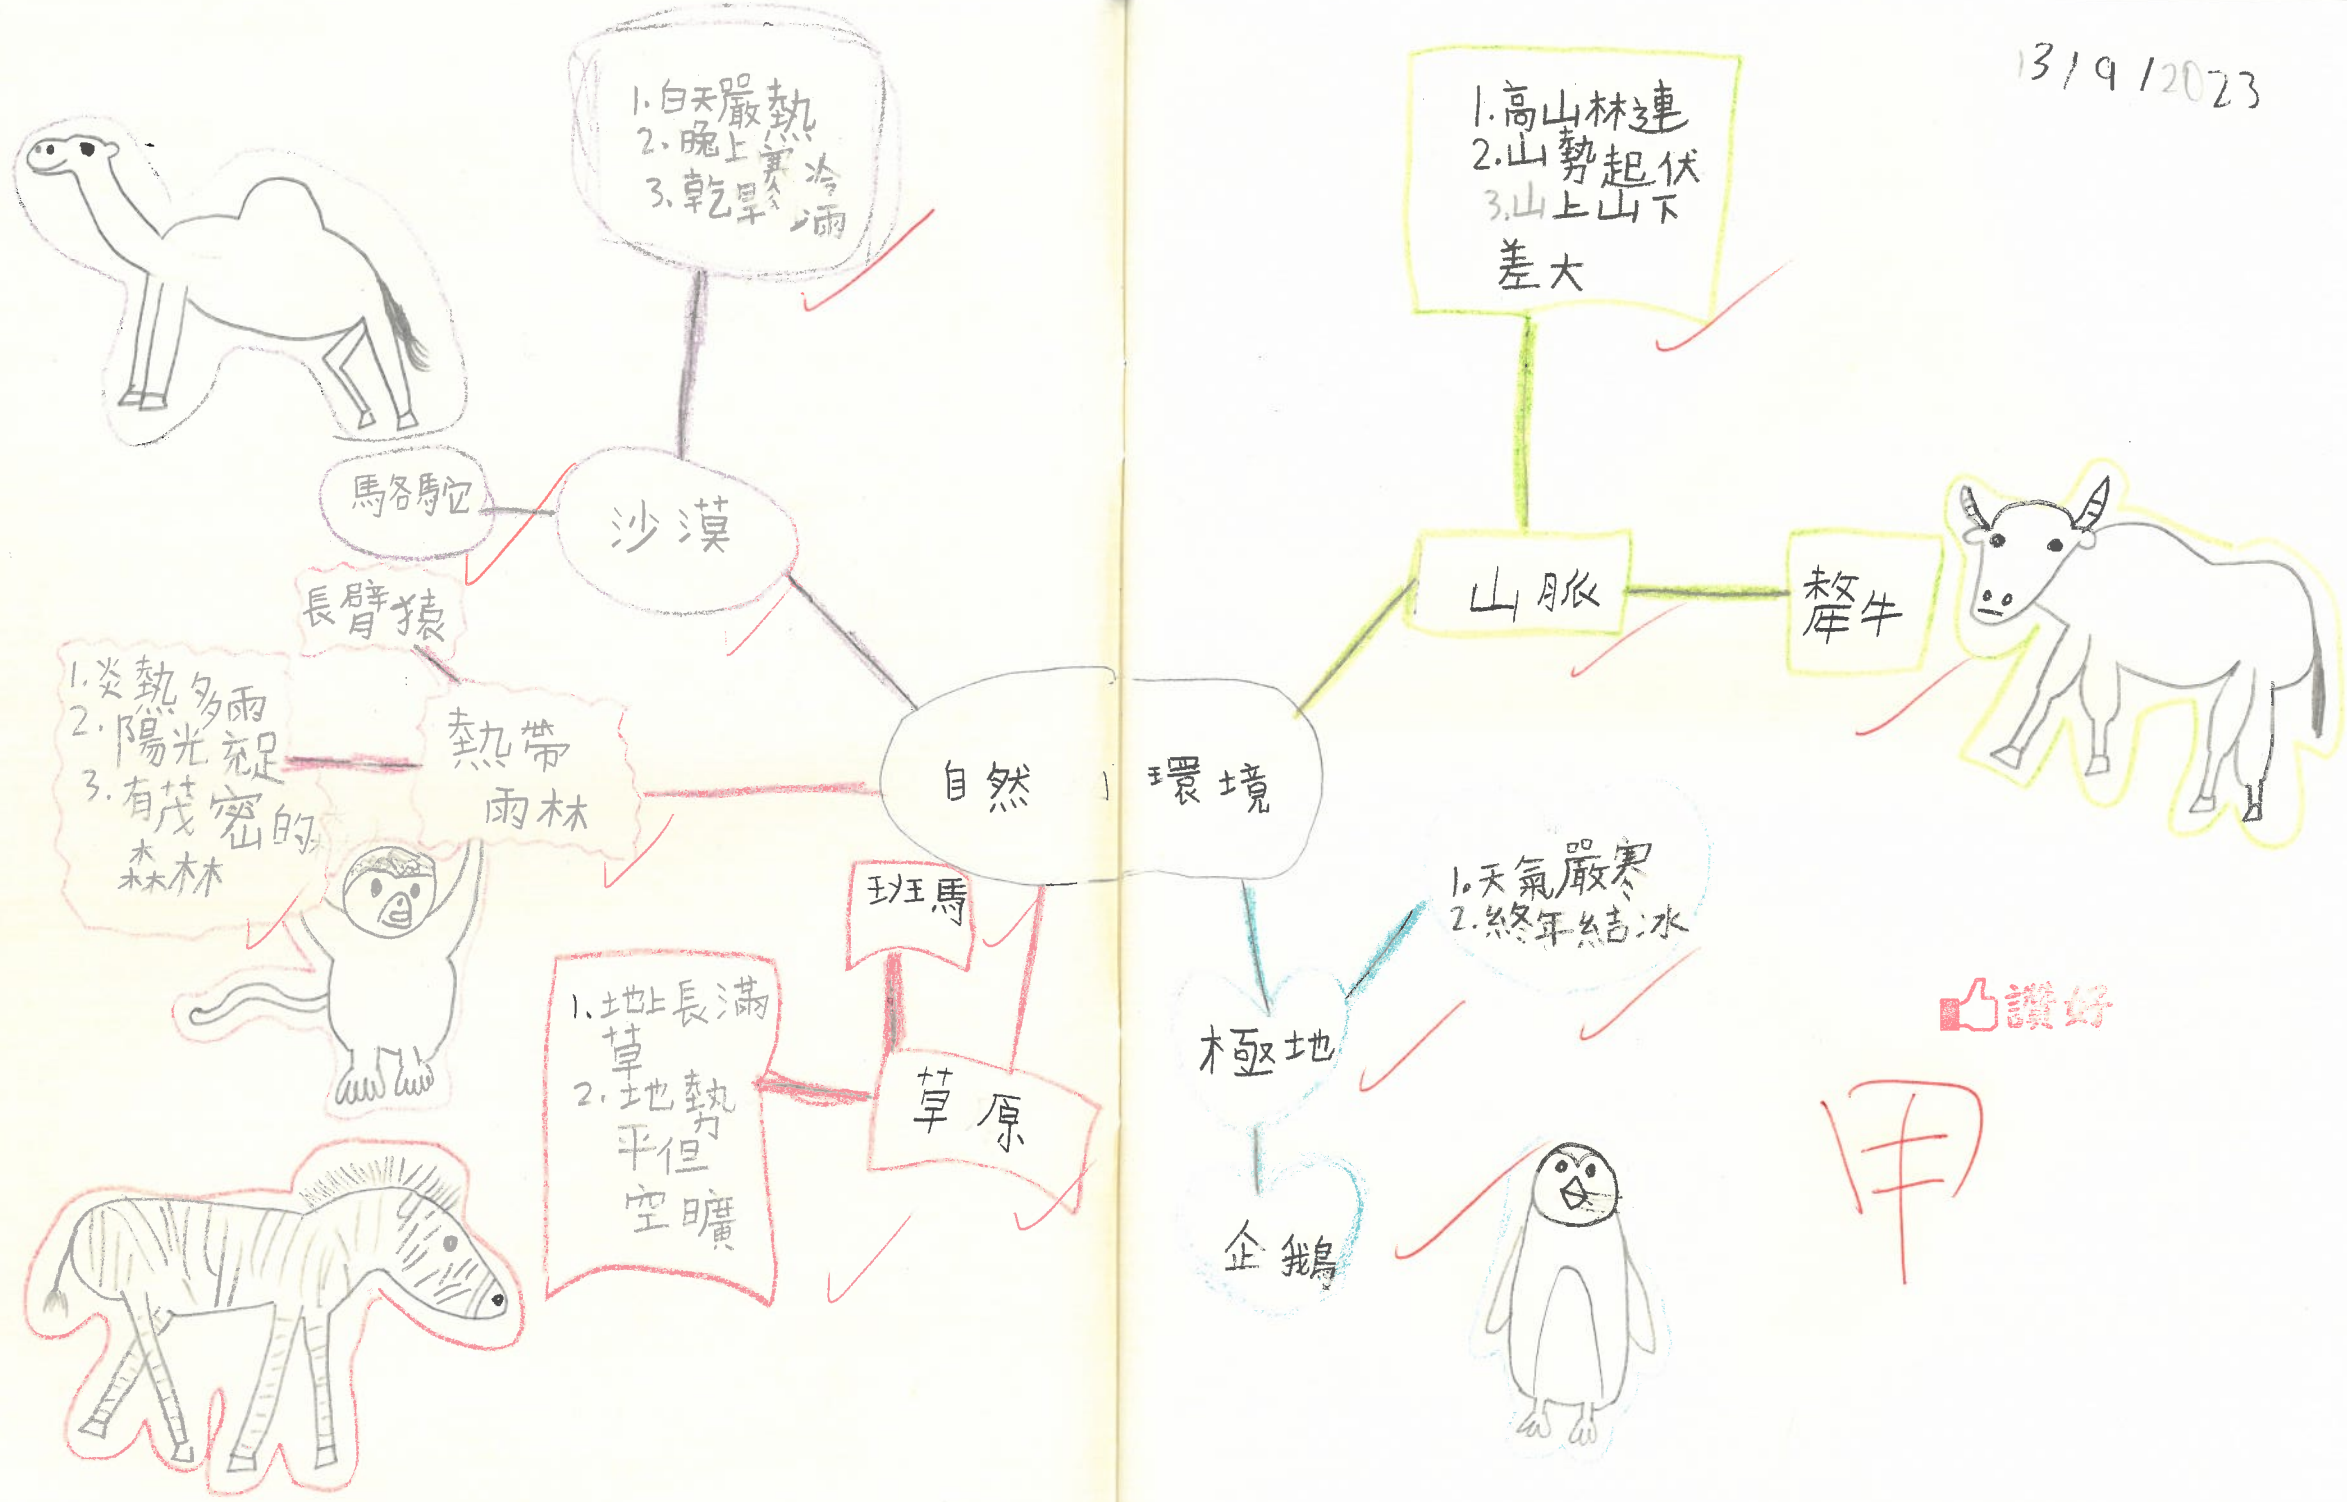 13/9/2023
1.白天嚴熱
2.晚上寒冷
3.乾旱少雨
駱駝
沙漠
長臂猿
1.炎熱多雨
2.陽光充足
3.有茂密的
森林
熱帶
雨林
自然環境
班馬
1.地上長滿
草
2.地勢
平但
空曠
草原
1.高山林連
2.山勢起伏
3.山上山下
差大
山脈
犛牛
1.天氣嚴寒
2.終年結冰
極地
企鵝
讚好
甲